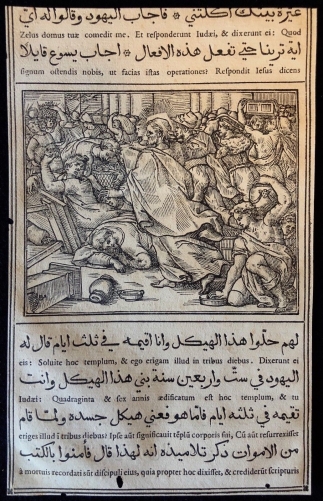 غيرة بيتك اكلتني * فاجاب اليهود وقالوا له اي
Zelus domus tuæ comedit me. Et responderunt Iudæi, & dixerunt ei: Quod
اية ترينا حتي تفعل هذه الافعال * اجاب يسوع قايلا
signum ostendis nobis, ut facias istas operationes? Respondit Iesus dicens
لهم حلوا هذا الهيكل وانا اقيمه في ثلثة ايام قال له
eis: Soluite hoc templum, & ego erigam illud in tribus diebus. Dixerunt ei
اليهود في ست واربعين سنة بني هذا الهيكل وانت
Iudæi: Quadraginta & sex annis ædificatum est hoc templum, & tu
تقيمه في ثلثه ايام فاما هو فعني هيكل جسده ولما قام
eriges illud ĩ tribus diebus? Ipse aũt significauit tẽplũ corporis sui, Cũ aũt resurrexisset
من الاموات ذكر تلاميذه انه لهذا قال فامنوا بالكتب
à mortuis recordati sũt discipuli eius, quia propter hoc dixisset, & crediderũt scripturis